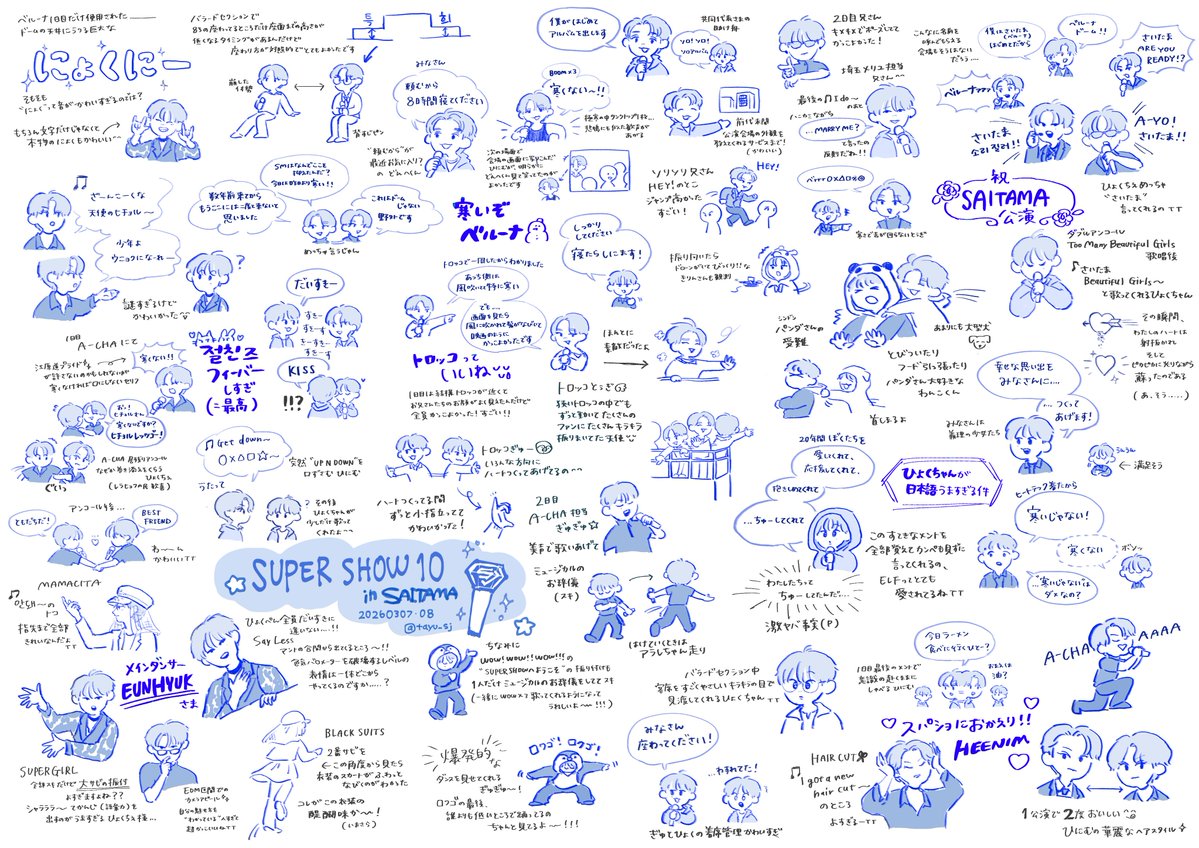 ベルーナ1日目だけ使用された
ドームの天井にうつる巨大な
にょくにー
そもそも
"にょく"って音がかわいすぎるのでは?
もちろん文字だけじゃなくて
本物のにょくもかわいい
バラードセクションで
83の座ってるところだけ座面までの高さが
低くなるタイミングがあるんだけど
座わり方が対照的でとてもよかったです
崩した
体勢
背すじピン
みなさん
頼むから
8時間寝てください
"頼むから"が
最近お気に入り?
のどんへくん
僕がはじめて
アルバムを出します
共同代表さまの
助け舟
YO! YO!
YOアルバム
BOOM×3
寒くない〜!!
極寒の中タンクトップ1枚…
悲鳴にも似た歓声が
あがる
次の場面で
会場の画面に写りこんだ
ひにむが、明らかに
どんへくんに見とれてたのが
よかったです
2日目兄さん
キメキメでポーズしてて
かっこよかった!
埼玉メリユ担当
兄さん〜
前代未聞
公演会場の外観を
教えてくれるサービスまで!
(かわいい)
最後の♫I do〜
のあと
ハニかみながら
...MARRY ME?
と言ったの
反則だね!!
こんなに名前を
呼んでもらえる
会場もそうはない
だろう…
僕はさいたま
(ベルーナ)
はじめてだから
ベルーナ
ドーム!!
さいたま
ARE YOU
READY!?
ベルーナァァァ
さいたま
소리질러!!
A-YO!
さいたま!!
祝
SAITAMA
公演
ひょくちぇめっちゃ
"さいたま"
言ってくれるのTT
ざーんこーくな
天使のヒチョル〜
少年よ
ウニョクになーれー
謎すぎるけど
かわいかった
SMはなんでここを
抑えたんだ?
今日は昨日より寒い!!
数年前来てから
もうここには二度と来ないと
思いました
これはドーム
じゃない
野外です
めっちゃ言うじゃん
寒いぞ
ベルーナ
しっかり
してください
寝たらしにます!
ソリソリ兄さん
HEY!のとこ
ジャンプ高かった
すごい!
HEY!
べrrr○×△□×◎
寒さで舌が回らないとうぎ
振り向いたら
ドローンがいてびっくり!!な
きりんさんも観測
シンドン
パンダさんの
受難
あまりにも大型犬
とびついたり
フードひっ張ったり
パンダさん大好きな
わんこくん
首しまるよ
ダブルアンコール
Too Many Beautiful Girls
歌唱後
♫さいたま
Beautiful Girls〜
と歌ってくれるひょくちゃん
その瞬間、
わたしのハートは
射抜かれ
そして
ピカピカに光りながら
蘇ったのである
(あ、そう.....)
1日目
A-CHAにて
寒くない!!
江原道プライドが
許さないのかもしれないが
寒くなければ口にしないセリフ
おっ!
ヒチョルさん
寒くないですか?
ヒチョルレッツゴー!
A-CHA屋根りアンコール
なぜか巻き添えをくらう
ひょくちぇ
(レラヒョクの民歓喜)
ぐいっ
だいすきー
すきー
すーきー
すーきー
きーすー
すーきす
KISS
!!?
フィーバー
しすぎ
(=最高)
トロッコで一周したからわかりました
あっち側は
風吹いてて特に寒い
でも...
画面を見たら
風に吹かれて髪がなびいて
映画のように
かっこよかったです
ほんとに
素敵だったよ
トロッコって
いいね
1日目は結構トロッコが近くて
お兄さんたちのお顔がよく見えたんだけど
全員かっこよかった!すごい!!
トロッコとうぎ
狭いトロッコの中でも
ずっと動いてたくさんの
ファンにたくさんキラキラ
振りまいてた天使
トロッコぎゅー
いろんな方向に
ハートつくってあげてるの〜
♫Get down〜
○×△□☆〜
突然"UP N DOWN"を
口ずさむひにむ
うたって
その後
ひょくちゃんが
少しだけ歌って
くれたよ〜
ハートつくってる間
ずっと小指立ってて
かわいかった!
2日目
A-CHA担当
ぎゅぎゅ☆
美声で歌いあげて
ミュージカルの
お辞儀
(スキ)
はけていくときは
アラレちゃん走り
アンコール後...
ともだちだ!
BEST
FRIEND
わ〜〜ん
かわいいTT
MAMACITA
のトコ
指先まで全部
きれいなんだよ
TT
SUPER SHOW 10
in SAITAMA
20260307・08
@tayu-sj
ひょくぺん全員だいすきに
違いない…!!
Say Less
マントの合間から出てくるところ〜!!
色気バロメーターを破壊するレベルの
表情は一体どこから
やってくるのですか.....?
メインダンサー
EUNHYUK
さま
SUPER GIRL
今回ヌナだけで大サビの振付
よすぎますよね??
シャララ〜ってかんじ(語彙力)を
出すのがうますぎるひょくちぇ様…
EDM区間での
カメラアピールがね
自分の魅せ方を
"わかっている"人すぎて
超かっこいいですTT
BLACK SUITS
2番サビを
←この角度から見たら
衣装のスカートがふわっと
なびくのがわかった
コレがこの衣装の
醍醐味か〜!
(いまさら)
ちなみに
WOW! WOW!! WOW!!!の
"SUPER SHOWへようこそ"の振り付けも
1人だけミュージカルのお辞儀をしててスキ
(一緒にWOW×7歌ってくれるようになって
うれしいよ〜!!!)
爆発的な
ダンスを見せてくれる
ぎゅぎゅ〜!
ロクゴの最後、
誰よりも低いところで踊ってるの
ちゃんと見てるよ〜!!!
ロクゴ! ロクゴ!
20年間ぼくたちを
愛してくれて、
応援してくれて、
抱きしめてくれて
...ちゅーしてくれて
わたしたちって
ちゅーしてたんだ.....
激ヤバ事実(P)
幸せな思い出を
みなさんに....
....つくって
あげます!
みなさんは
義理の少女たち
うんうん
←満足そう
ひょくちゃんが
日本語うますぎる件
このすてきなメントを
全部覚えてカンペも見ずに
言ってくれるの、
ELFってとても
愛されてるねTT
ヒートテック着たから
寒いじゃない!
寒くない
ボソッ
...寒いじゃないは
ダメなの?
バラードセクション中
客席をすごくやさしいキラキラの目で
見渡してくれるひょくちゃんTT
みなさん
座わってください!
...わすれてた!
ぎゅとひょくの着席管理かわいすぎ
今日ラーメン
食べに行くひと〜?
おまえは
油?
1日目最後のメントで
意識の赴くままに
しゃべるひにむ
スパショにおかえり!!
HEENIM
A-CHA
AAAA
HAIR CUT
♫I got a new
hair cut〜
のところ
よすぎる〜TT
1公演で2度おいしい
ひにむの華麗なヘアスタイル